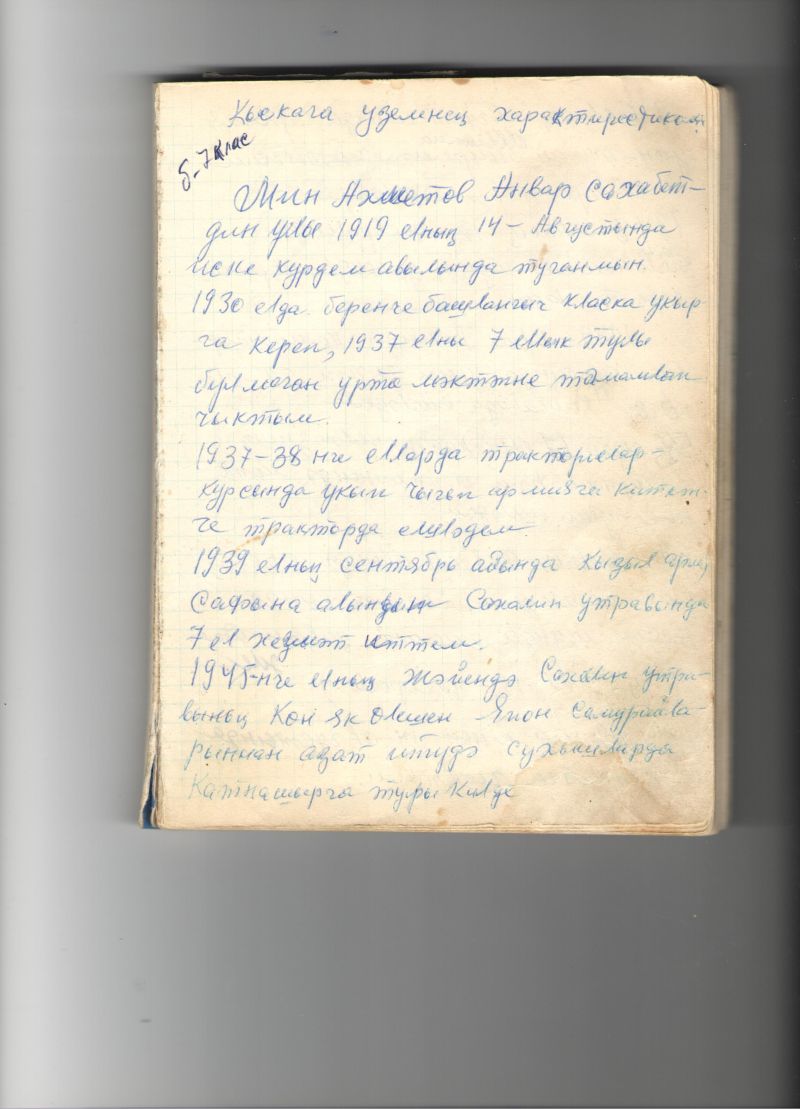 Кыскача уземнең характиристикам
5-7 клас
Мин Ахметов Анвар Сахабет-
дин улы 1919 елның 14-Августында
иске курдем авылында туганмын.
1930 елда беренче башлангыч класка укыр-
га Кереп, 1937 елны 7 еллык тулы
булмаган урта мәктәпне тәмамлап
чыктым.
1937-38 нче елларда тракторислар-
курсында укып чыгып армияга киткән-
че тракторда эшләдем.
1939 елның сентябрь аенда Кызыл арми,
Сафына алындым Сахалин утравында
7 ел хезмәт иттем.
1945-нче елның Жәйендә Сахалин утра-
вының Көн як өлешен Япон Самурайла-
рыннан азат итудә сугышларда
Катнашырга туры килде